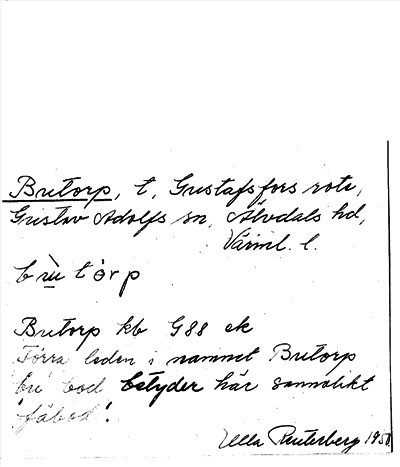 Brutorp, t, Gustafsfors rote,
Gustav Adolfs sn, Älvdals hd,
Värml. l.
brùtórp
Brutorp kb G88 ek
Förra leden i namnet Brutorp
bu bod betyder här sannolikt
'fäbod'.
Ulla Reuterberg